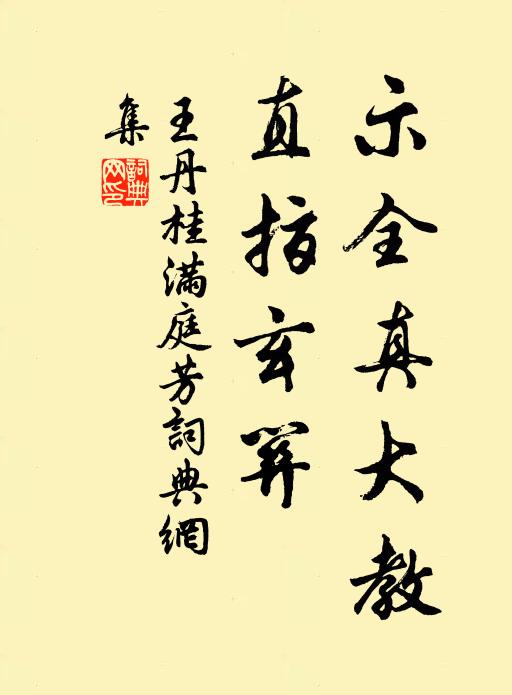 示全真大教
直指玄
王丹桂滿庭芳詞典網
集
詞典
網印